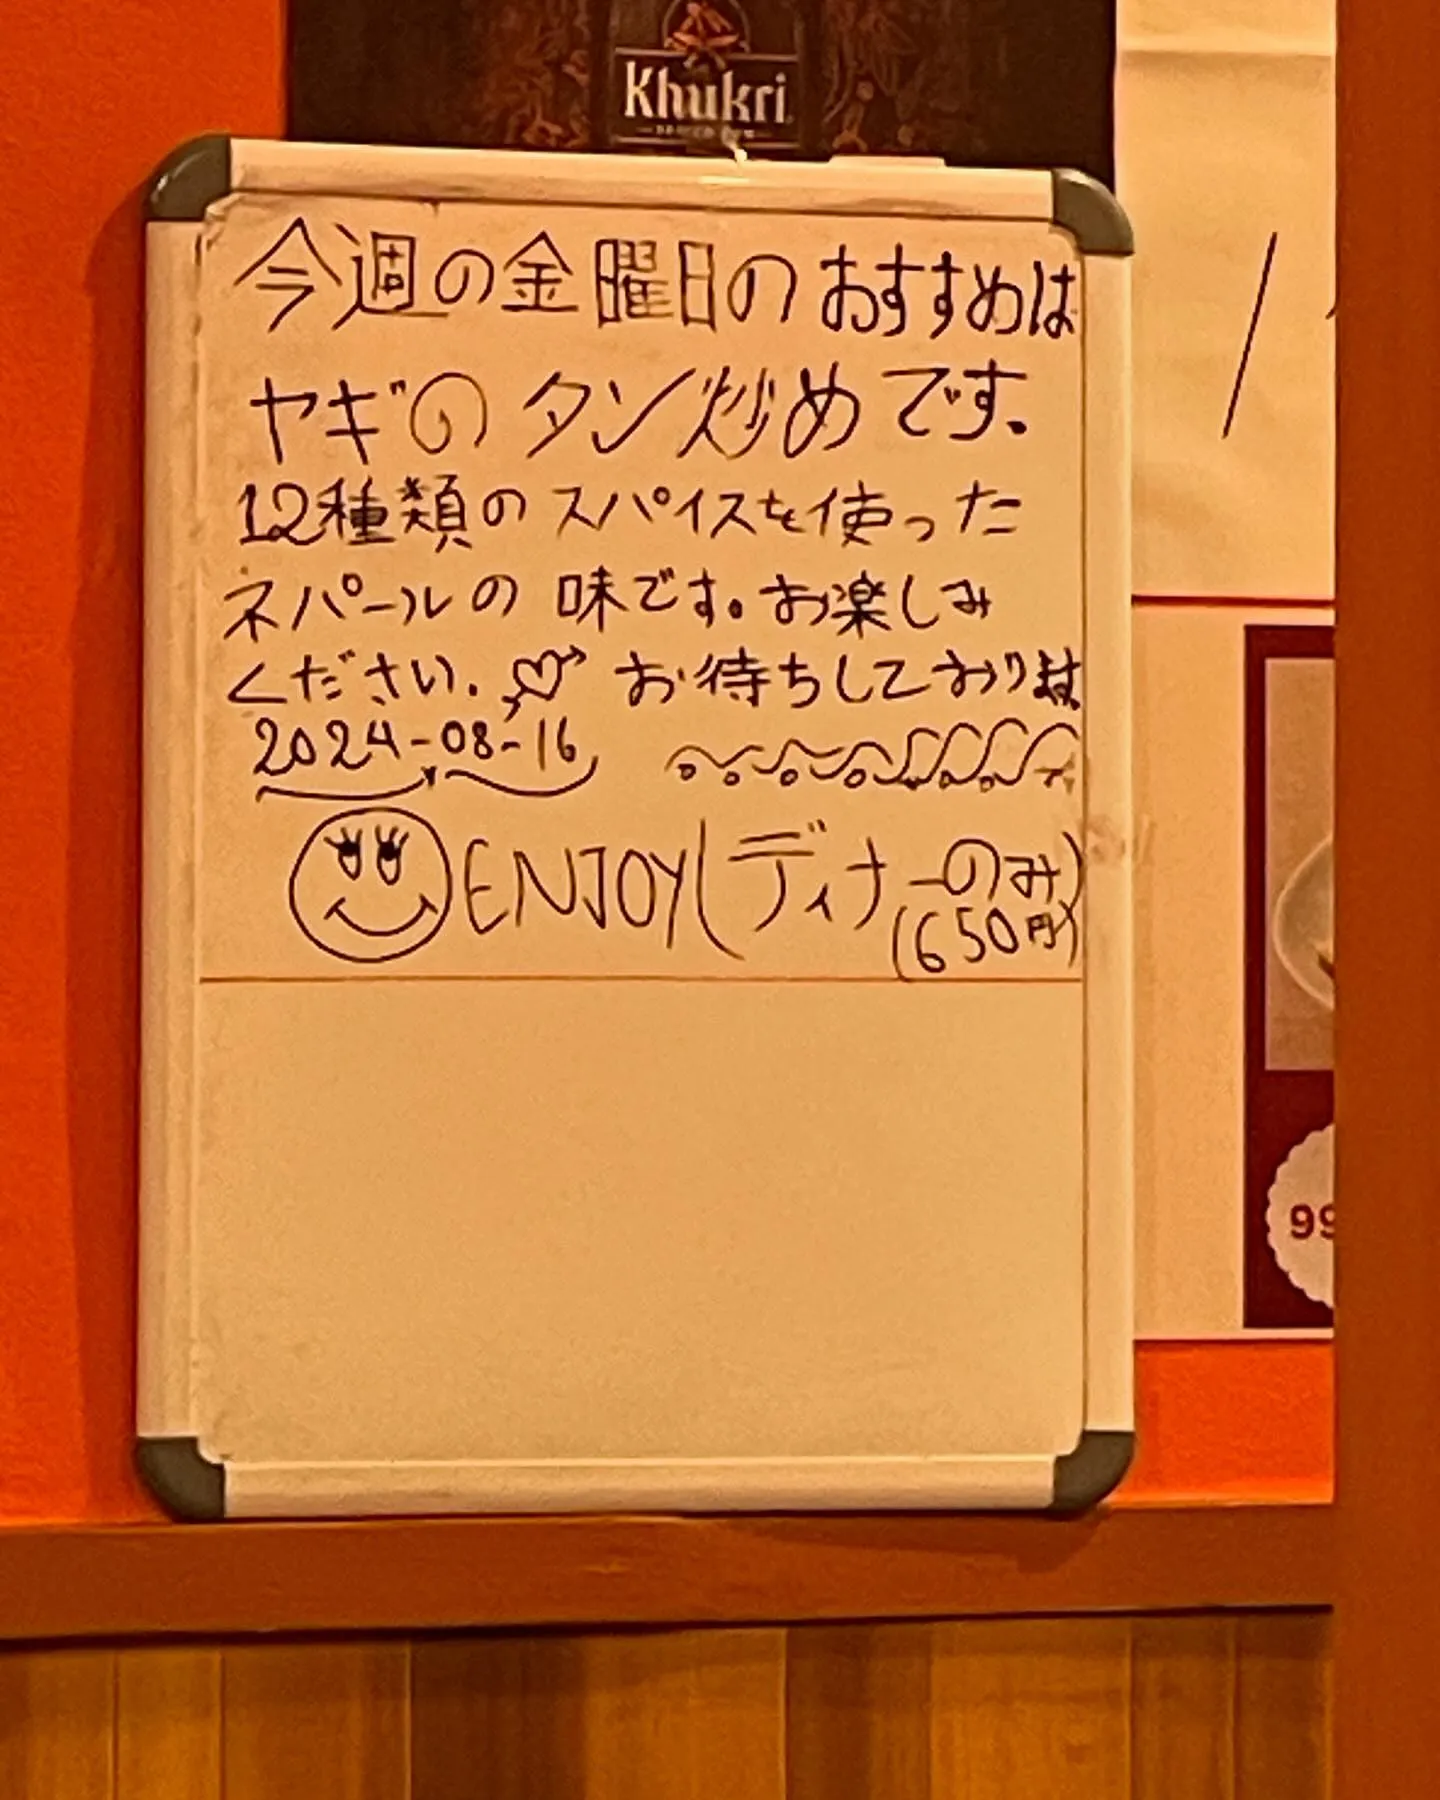 Khukri
今週の金曜日のおすすめは
ヤギのタン炒めです.
12種類のスパイスを使った
ネパールの味です。お楽しみ
ください. お待ちしております
2024-08-16
ENJOY(ディナーのみ)
(650円)